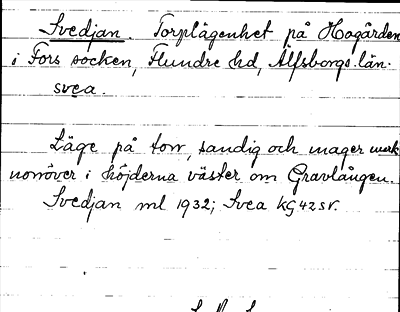 Svedjan. Torplägenhet på Hogården
i Fors socken, Flundre hd, Älfsborgs län.
svea.
Läge på torr, sandig och mager mark
norröver i höjderna väster om Gravlången.
Svedjan ml 1932; Svea kG 42 SV.